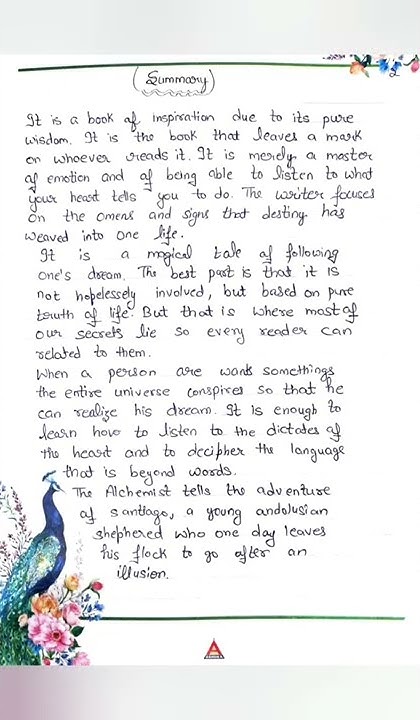 2
(Summary)
It is a book of inspiration due to its pure
wisdom. It is the book that leaves a mark
on whoever reads it. It is merely a master
of emotion and of being able to listen to what
your heart tells you to do. The writer focuses
on the omens and signs that destiny has
weaved into one life.
It is a magical tale of following
one's dream. The best part is that it is
not hopelessly involved, but based on pure
truth of life. But that is where most of
our secrets lie so every reader can
related to them.
When a person are wants somethings
the entire universe conspires so that he
can realize his dream. It is enough to
learn how to listen to the dictades of
the heart and to decipher the language
that is beyond words.
The Alchemist tells the adventure
of santiago, a young andolusian
shephered who one day leaves
his flock to go after an
illusion.